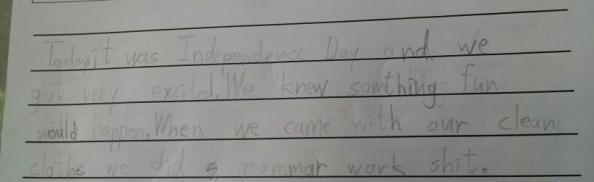 Today it was Independence Day and we
got very excited. We knew somthing fun
would happen. When we came with our clean
cloths we did grammar work shit.